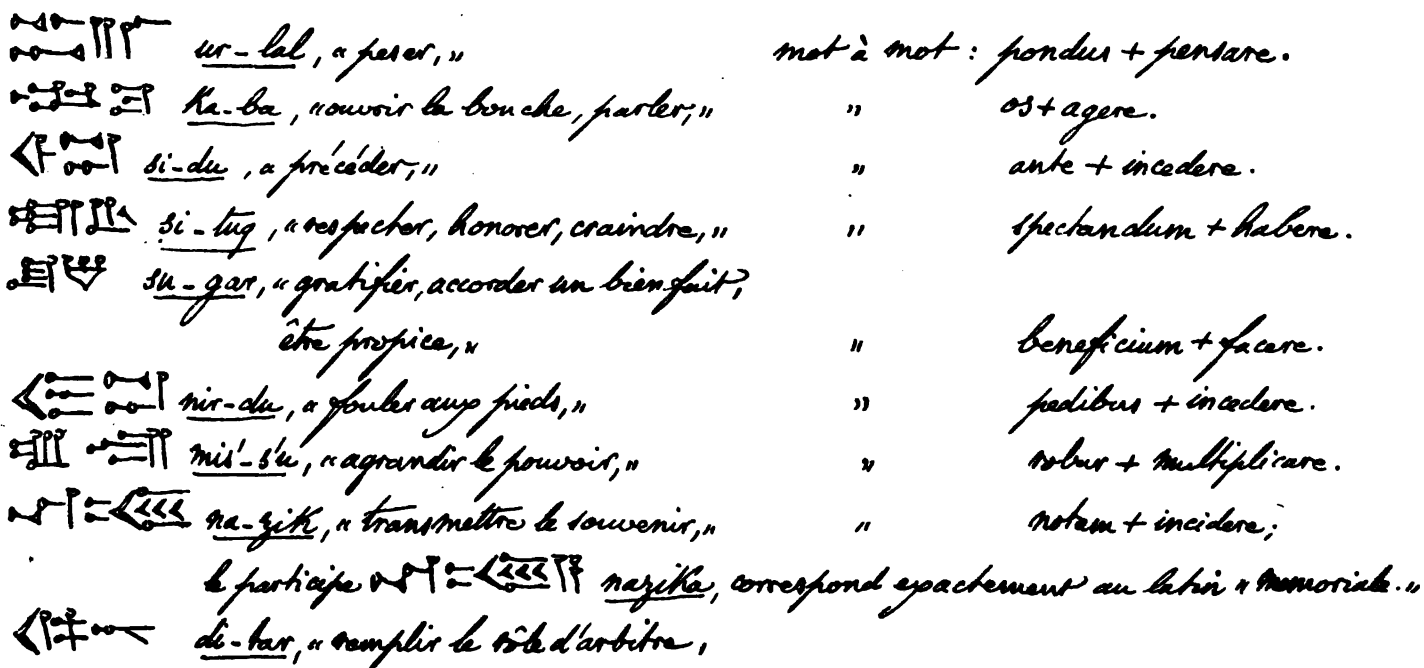 ur-lal, « peser, » mot à mot : pondus + pensare.
Ka-ba, « ouvrir la bouche, parler, » " os + agere.
si-du, « précéder, » " ante + incedere.
si-tuq, « respecter, honorer, craindre, » " spectandum + habere.
su-gar, « gratifier, accorder un bienfait,
être propice, » " beneficium + facere.
nir-du, « fouler aux pieds, » " pedibus + incedere.
mis'-s'u, « agrandir le pouvoir, » " robur + multiplicare.
na-zik, « transmettre le souvenir, » " notam + incidere ;
le participe nazika, correspond exactement au latin « memoriale. »
di-tar, « remplir le rôle d'arbitre,